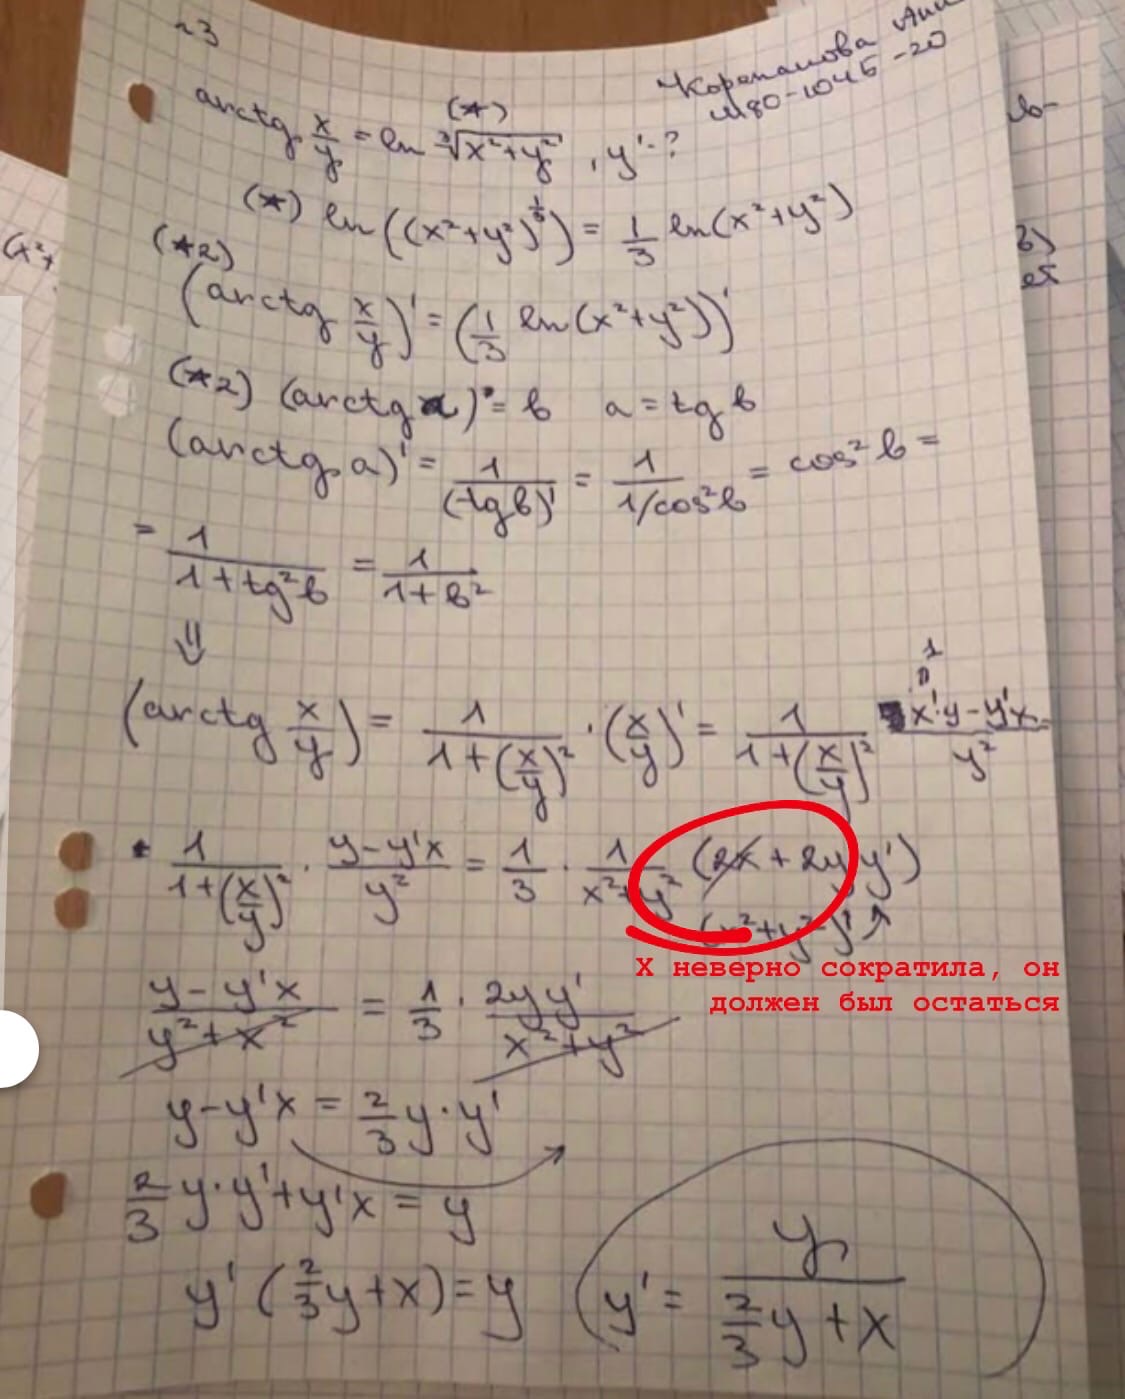 23
Корепанова Анн
М80-104Б-20
arctg x/y = ln ∛(x²+y²) (*) , y' - ?
(*) ln((x²+y²)^(1/3)) = 1/3 ln(x²+y²)
(*2)
(arctg x/y)' = (1/3 ln(x²+y²))'
(*2) (arctg a)' = b a = tg b
(arctg a)' = 1/(tg b)' = 1/(1/cos²b) = cos²b =
= 1/(1+tg²b) = 1/(1+b²)
⇓
1
(arctg x/y) = 1/(1+(x/y)²) · (x/y)' = 1/(1+(x/y)²) (x'·y-y'x)/y² =
1/(1+(x/y)²) · (y-y'x)/y² = 1/3 · 1/(x²+y²) (2x+2y y')
(x²+y²)'
X неверно сократила, он
должен был остаться
(y-y'x)/(y²+x²) = 1/3 · 2yy'/(x²+y²)
y-y'x = 2/3 y·y'
2/3 y·y'+y'x = y
y' (2/3 y+x) = y
y' = y/(2/3 y+x)